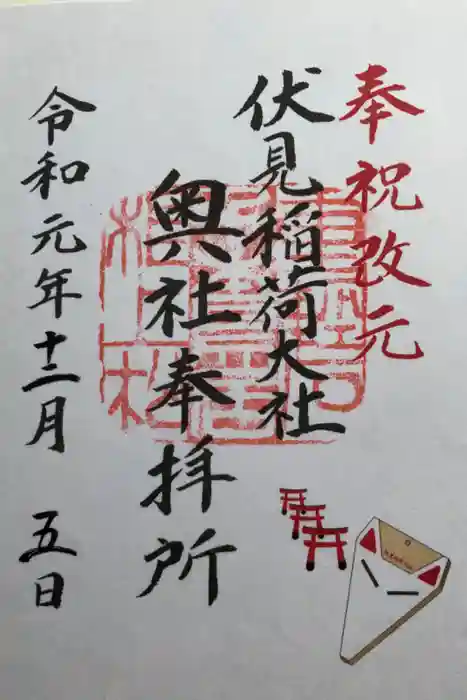 奉祝改元
伏見稲荷大社
奥社奉拝所
令和元年十二月 五日